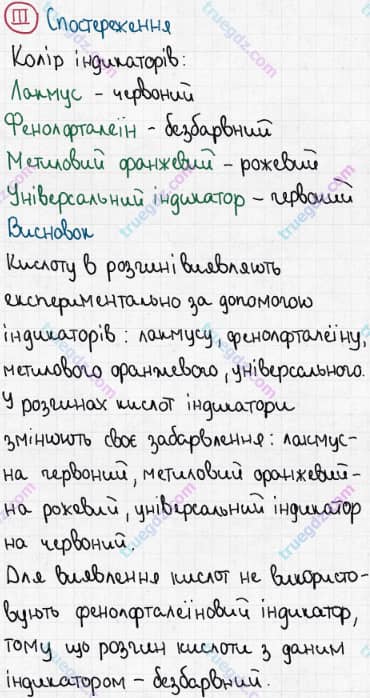 III Спостереження
Колір індикаторів:
Лакмус - червоний
Фенолфталеїн - безбарвний
Метиловий оранжевий - рожевий
Універсальний індикатор - червоний
Висновок
Кислоту в розчині виявляють
експериментально за допомогою
індикаторів: лакмусу, фенолфталеїну,
метилового оранжевого, універсального.
У розчинах кислот індикатори
змінюють своє забарвлення: лакмус-
на червоний, метиловий оранжевий-
на рожевий, універсальний індикатор
на червоний.
Для виявлення кислот не використо-
вують фенолфталеїновий індикатор,
тому що розчин кислоти з даним
індикатором - безбарвний.
truegdz.com
truegdz.com
truegdz.com
truegdz.com
truegdz.com
truegdz.com